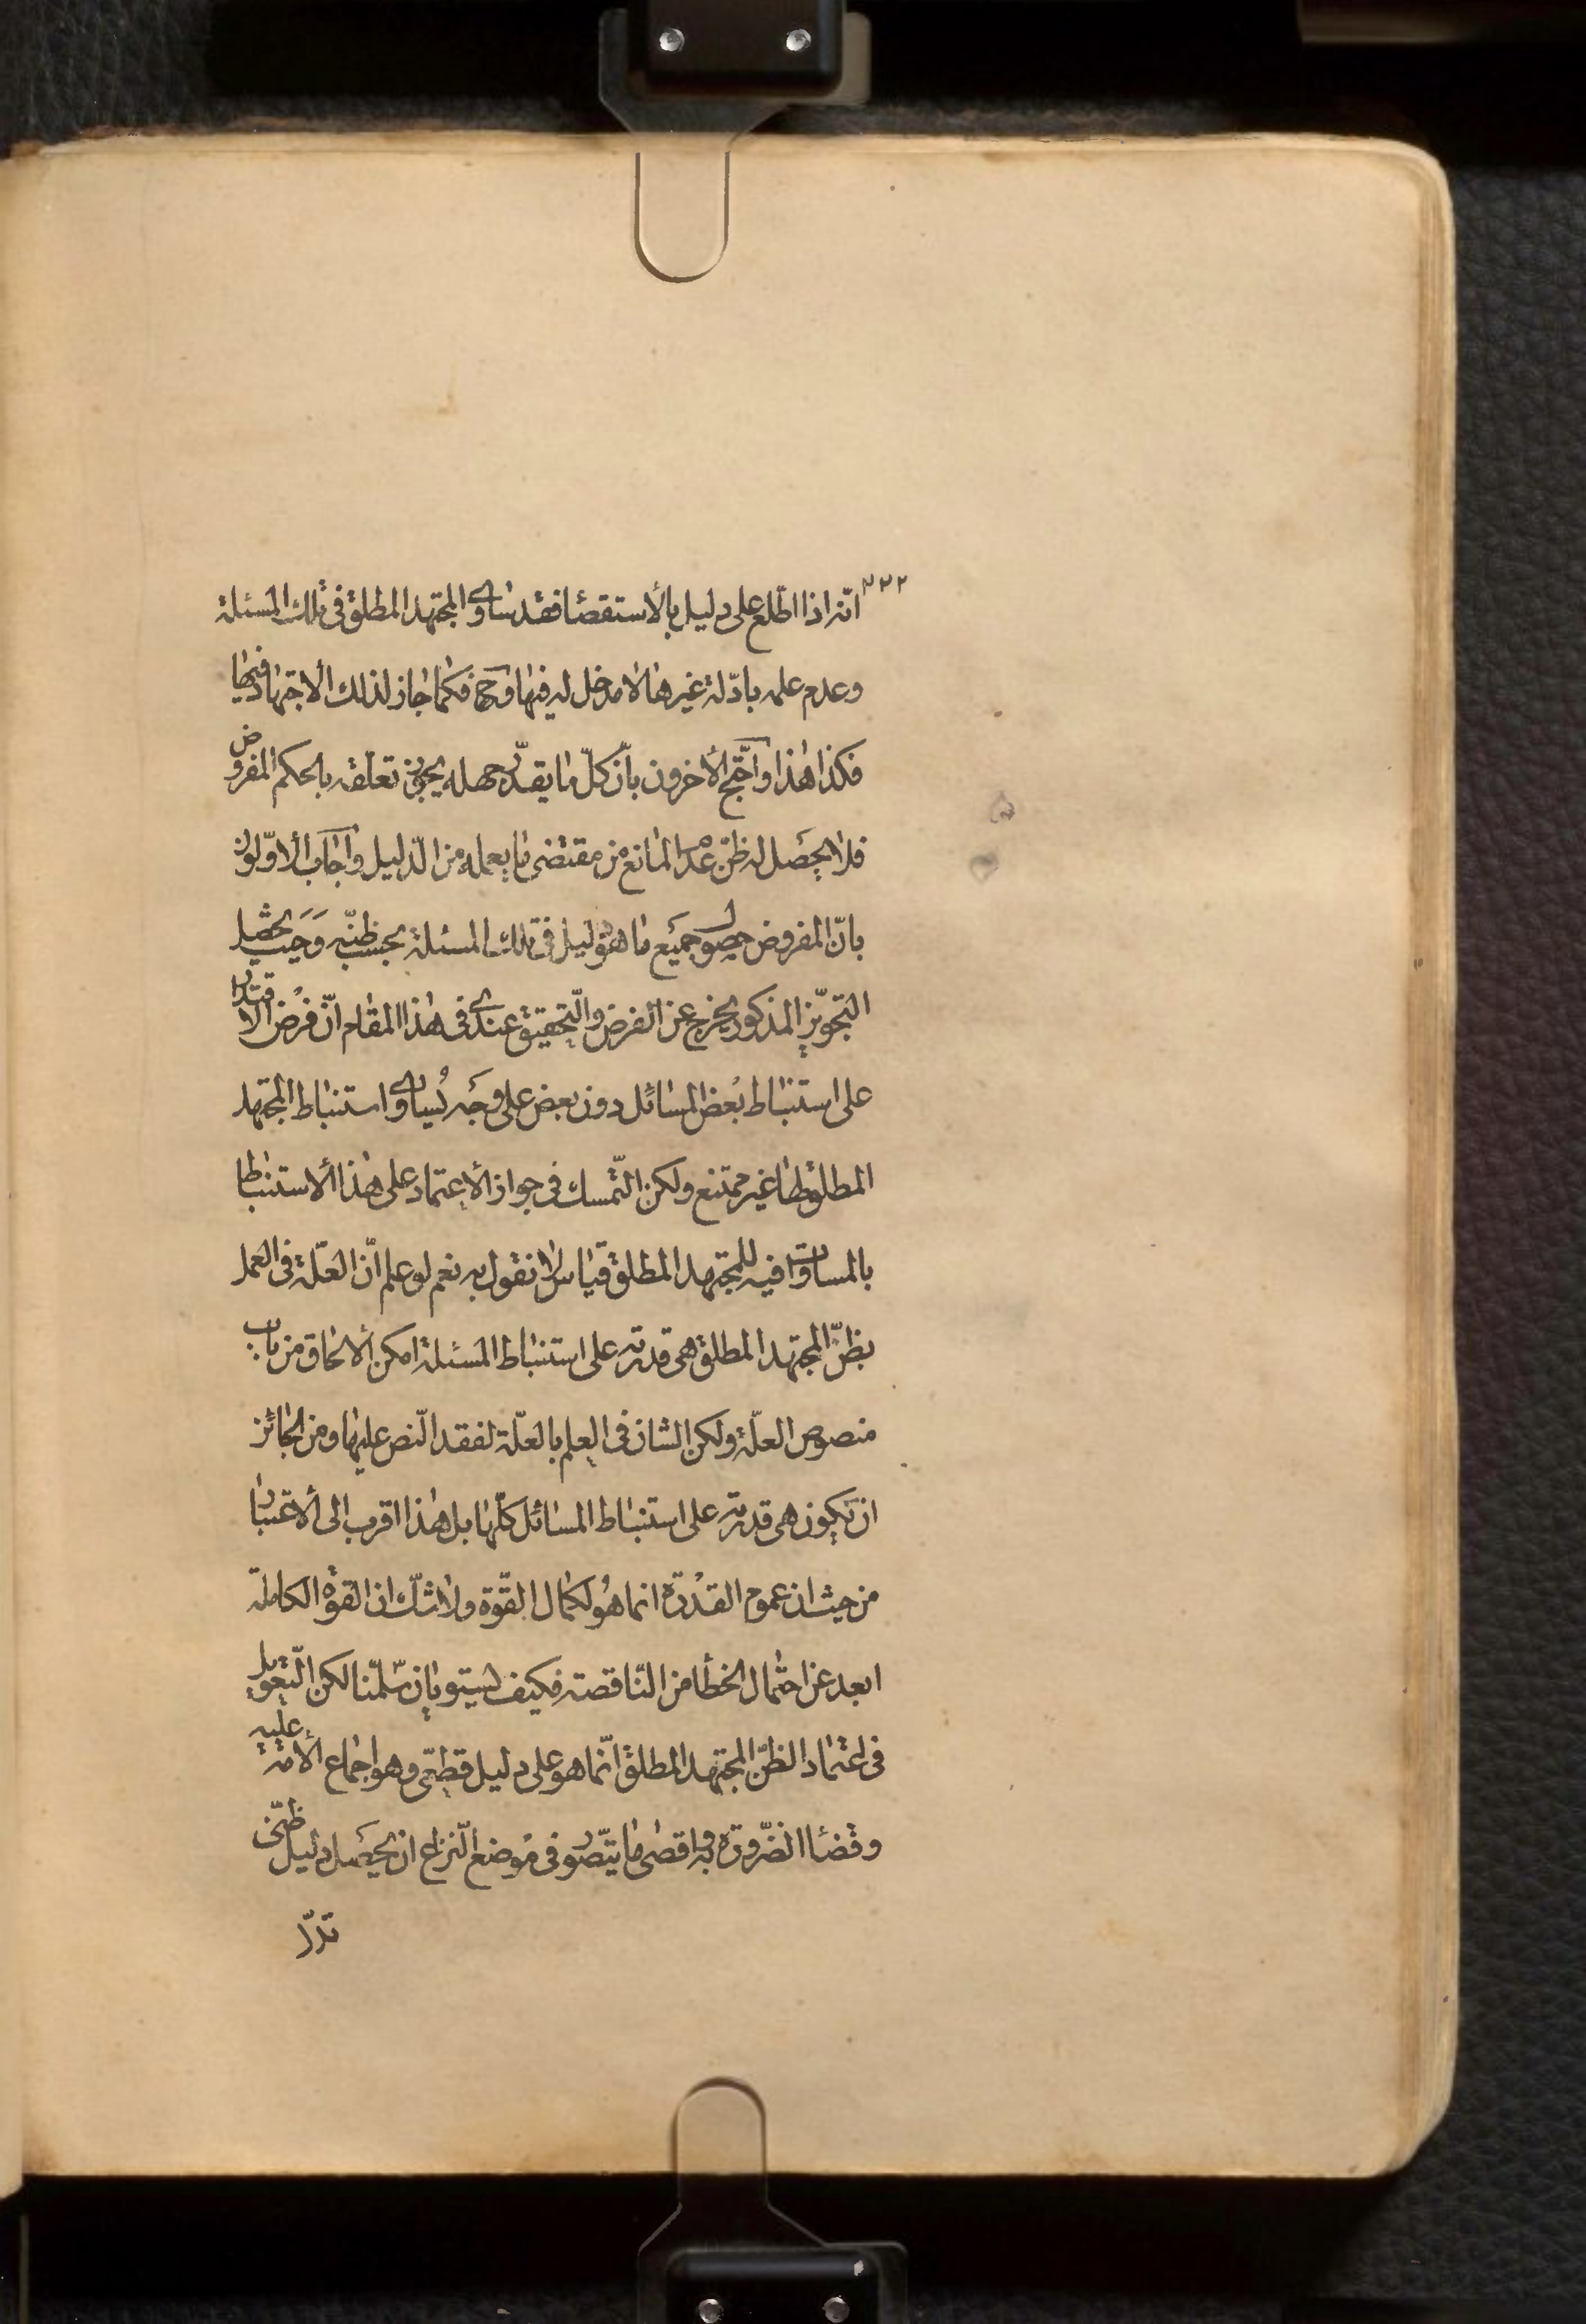 ٣٢٢
انّه اذا اطّلع علی دلیل بالأستقصا فقد ساوی المجتهد المطلق فی تلک المسئلة
وعدم علمه بادّلة غیرها لا مدخل له فیها وح فکما جاز لذلک الاجتهاد فیها
فکذا هذا واحتّج الأخرون بانّ کلّ ما یقدّر جهله یجوز تعلّقه بالحکم المفروض
فلا یحصل له ظنّ عدم المانع من مقتضی ما یعلمه من الدّلیل واجاب الاوّلون
بانّ المفروض حصول جمیع ما هو دلیل فی تلک المسئلة بحسب ظنّه وحیث یحصل
التجویّز المذکور یخرج عن الفرض والتّحقیق عندی فی هذا المقام انّ فرض الاقتدار
علی استنباط بعض المسائل دون بعض علی وجه یُساوی استنباط المجتهد
المطلق لها غیر ممتنع ولکن التّمسک فی جواز الأعتماد علی هذا الأستنباط
بالمساوات فیه للمجتهد المطلق قیاس لا نقول به نعم لو علم انّ العّلة فی العمل
بظنّ المجتهد المطلق هی قدرته علی استنباط المسئلة امکن الألحاق من باب
منصوص العلّة ولکن الشان فی العلم بالعلّة لفقد النّص علیها ومن الجائز
ان تکون هی قدرته علی استنباط المسائل کلّها بل هذا اقرب الی الأعتبار
من حیث ان عموم القدرة انما هو لکمال القّوة ولا شکّ ان القوّة الکاملة
ابعد عن احتمال الخطأ من النّاقصة فکیف یستویان سّلمّنا لکن التّعویل
فی اعتماد الظنّ المجتهد المطلق انّما هو علی دلیل قطعّی وهو اجماع الأمة علیه
وقضا الضّرورة به واقصی ما یتصّور فی موضع النّزاع ان یحصل دلیل ظنّی